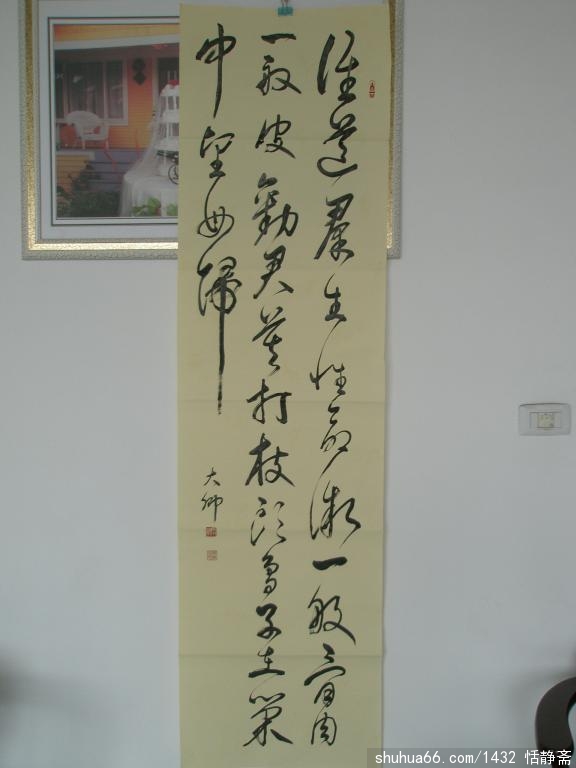 谁道羣生性命微一般骨肉
一般皮劝君莫打枝头鸟子在巢
中望母归
大卿
shuhua66.com/1432 恬静斋